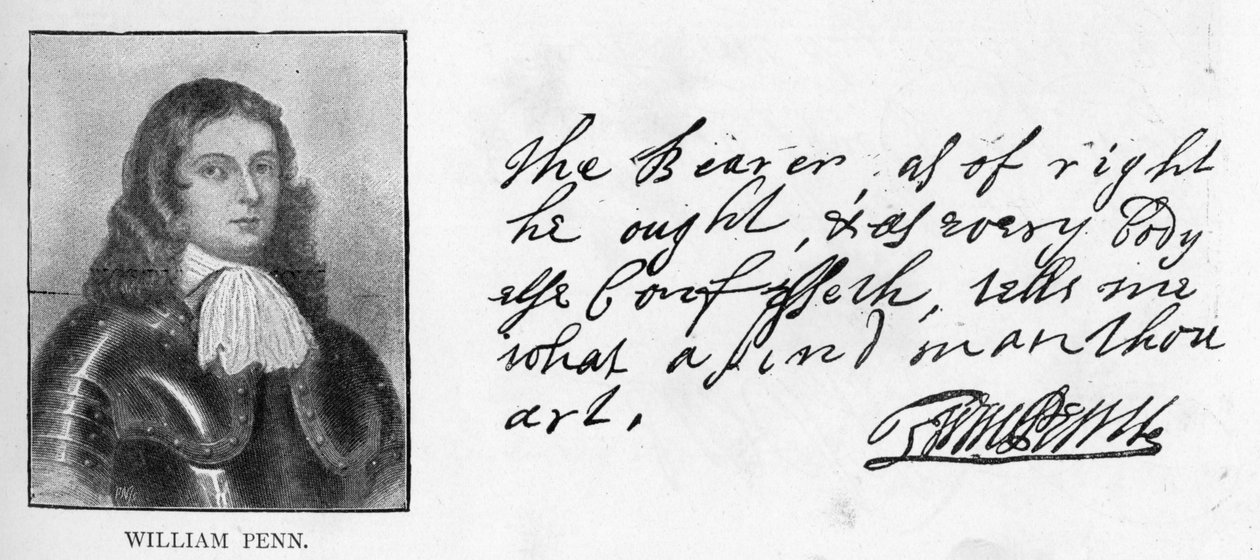 WILLIAM PENN.
The Bearer, as of right
he ought, & as every body
else Confesseth, tells me
what a kind man thou
art.
Wm Penn